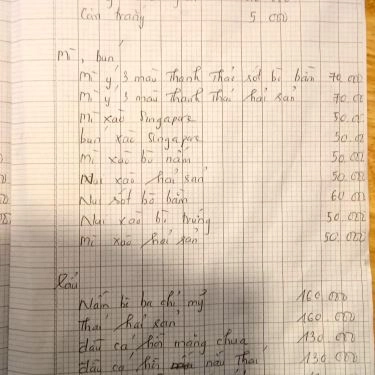 Cơm trắng 5 000
Mì, bún
Mì ý 3 màu Thanh Thái sốt bò bằm 70.000
Mì ý 3 màu Thanh Thái hải sản 70.0
Mì xào Singapore 50.0
bún xào Singapore 50.0
Mì xào bò nấm 50.00
Nui xào hải sản 50.000
Nui sốt bò bằm 60 000
Nui xào bò trứng 50.000
Mì xào hải sản 50.000
Lẩu
Nấm bò ba chỉ mỹ 160.000
Thái hải sản 160.000
đầu cá hồi măng chua 130.000
đầu cá hồi nấu Thái 130.000